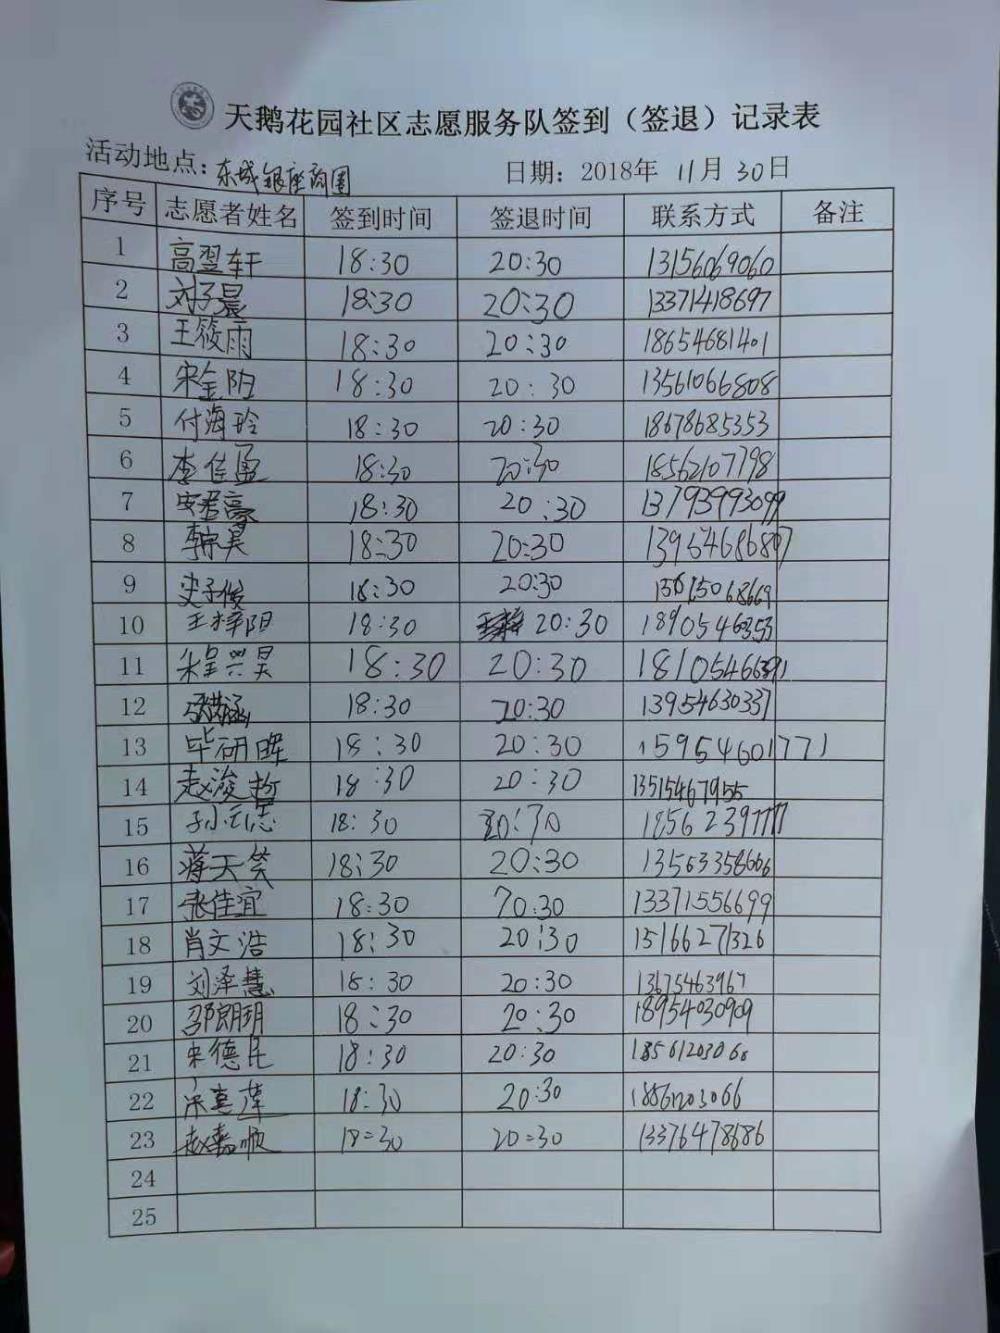 天鹅花园社区志愿服务队签到（签退）记录表
活动地点：东城银座商圈 日期：2018年 11月 30日
序号 志愿者姓名 签到时间 签退时间 联系方式 备注
1 高翌轩 18:30 20:30 13156069060
2 刘子晨 18:30 20:30 13371418697
3 王筱雨 18:30 20:30 18654681401
4 宋金阳 18:30 20:30 13561066808
5 付海玲 18:30 20:30 18678685353
6 李佳盈 18:30 20:30 18562107798
7 安君豪 18:30 20:30 13793993099
8 李宗昊 18:30 20:30 13954686807
9 史子俊 18:30 20:30
10 王梓阳 18:30 20:30 18905460353
11 朱呈兴昊 18:30 20:30
12 18:30 20:30 13954630337
13 毕研晖 18:30 20:30 15954601771
14 赵浚哲 18:30 20:30 13515467955
15 18:30 20:30 18562397777
16 蒋天笑 18:30 20:30 13563358606
17 张佳宜 18:30 20:30 13371556699
18 肖文浩 18:30 20:30 15166271326
19 刘泽慧 18:30 20:30 13675463967
20 邵朗玥 18:30 20:30 18954030909
21 宋德民 18:30 20:30 18561203066
22 18:30 20:30 18861203066
23 赵嘉顺 18:30 20:30 13376478686
24
25